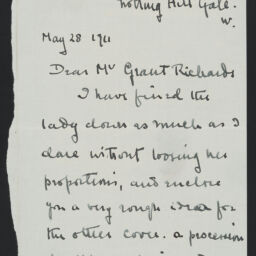 Notting Hill Gate.
W.
May 28 1911
Dear Mr Grant Richards
I have fined the
lady down as much as I
dare without loosing her
proportions, and enclose
you a very rough idea for
the other cover. a procession